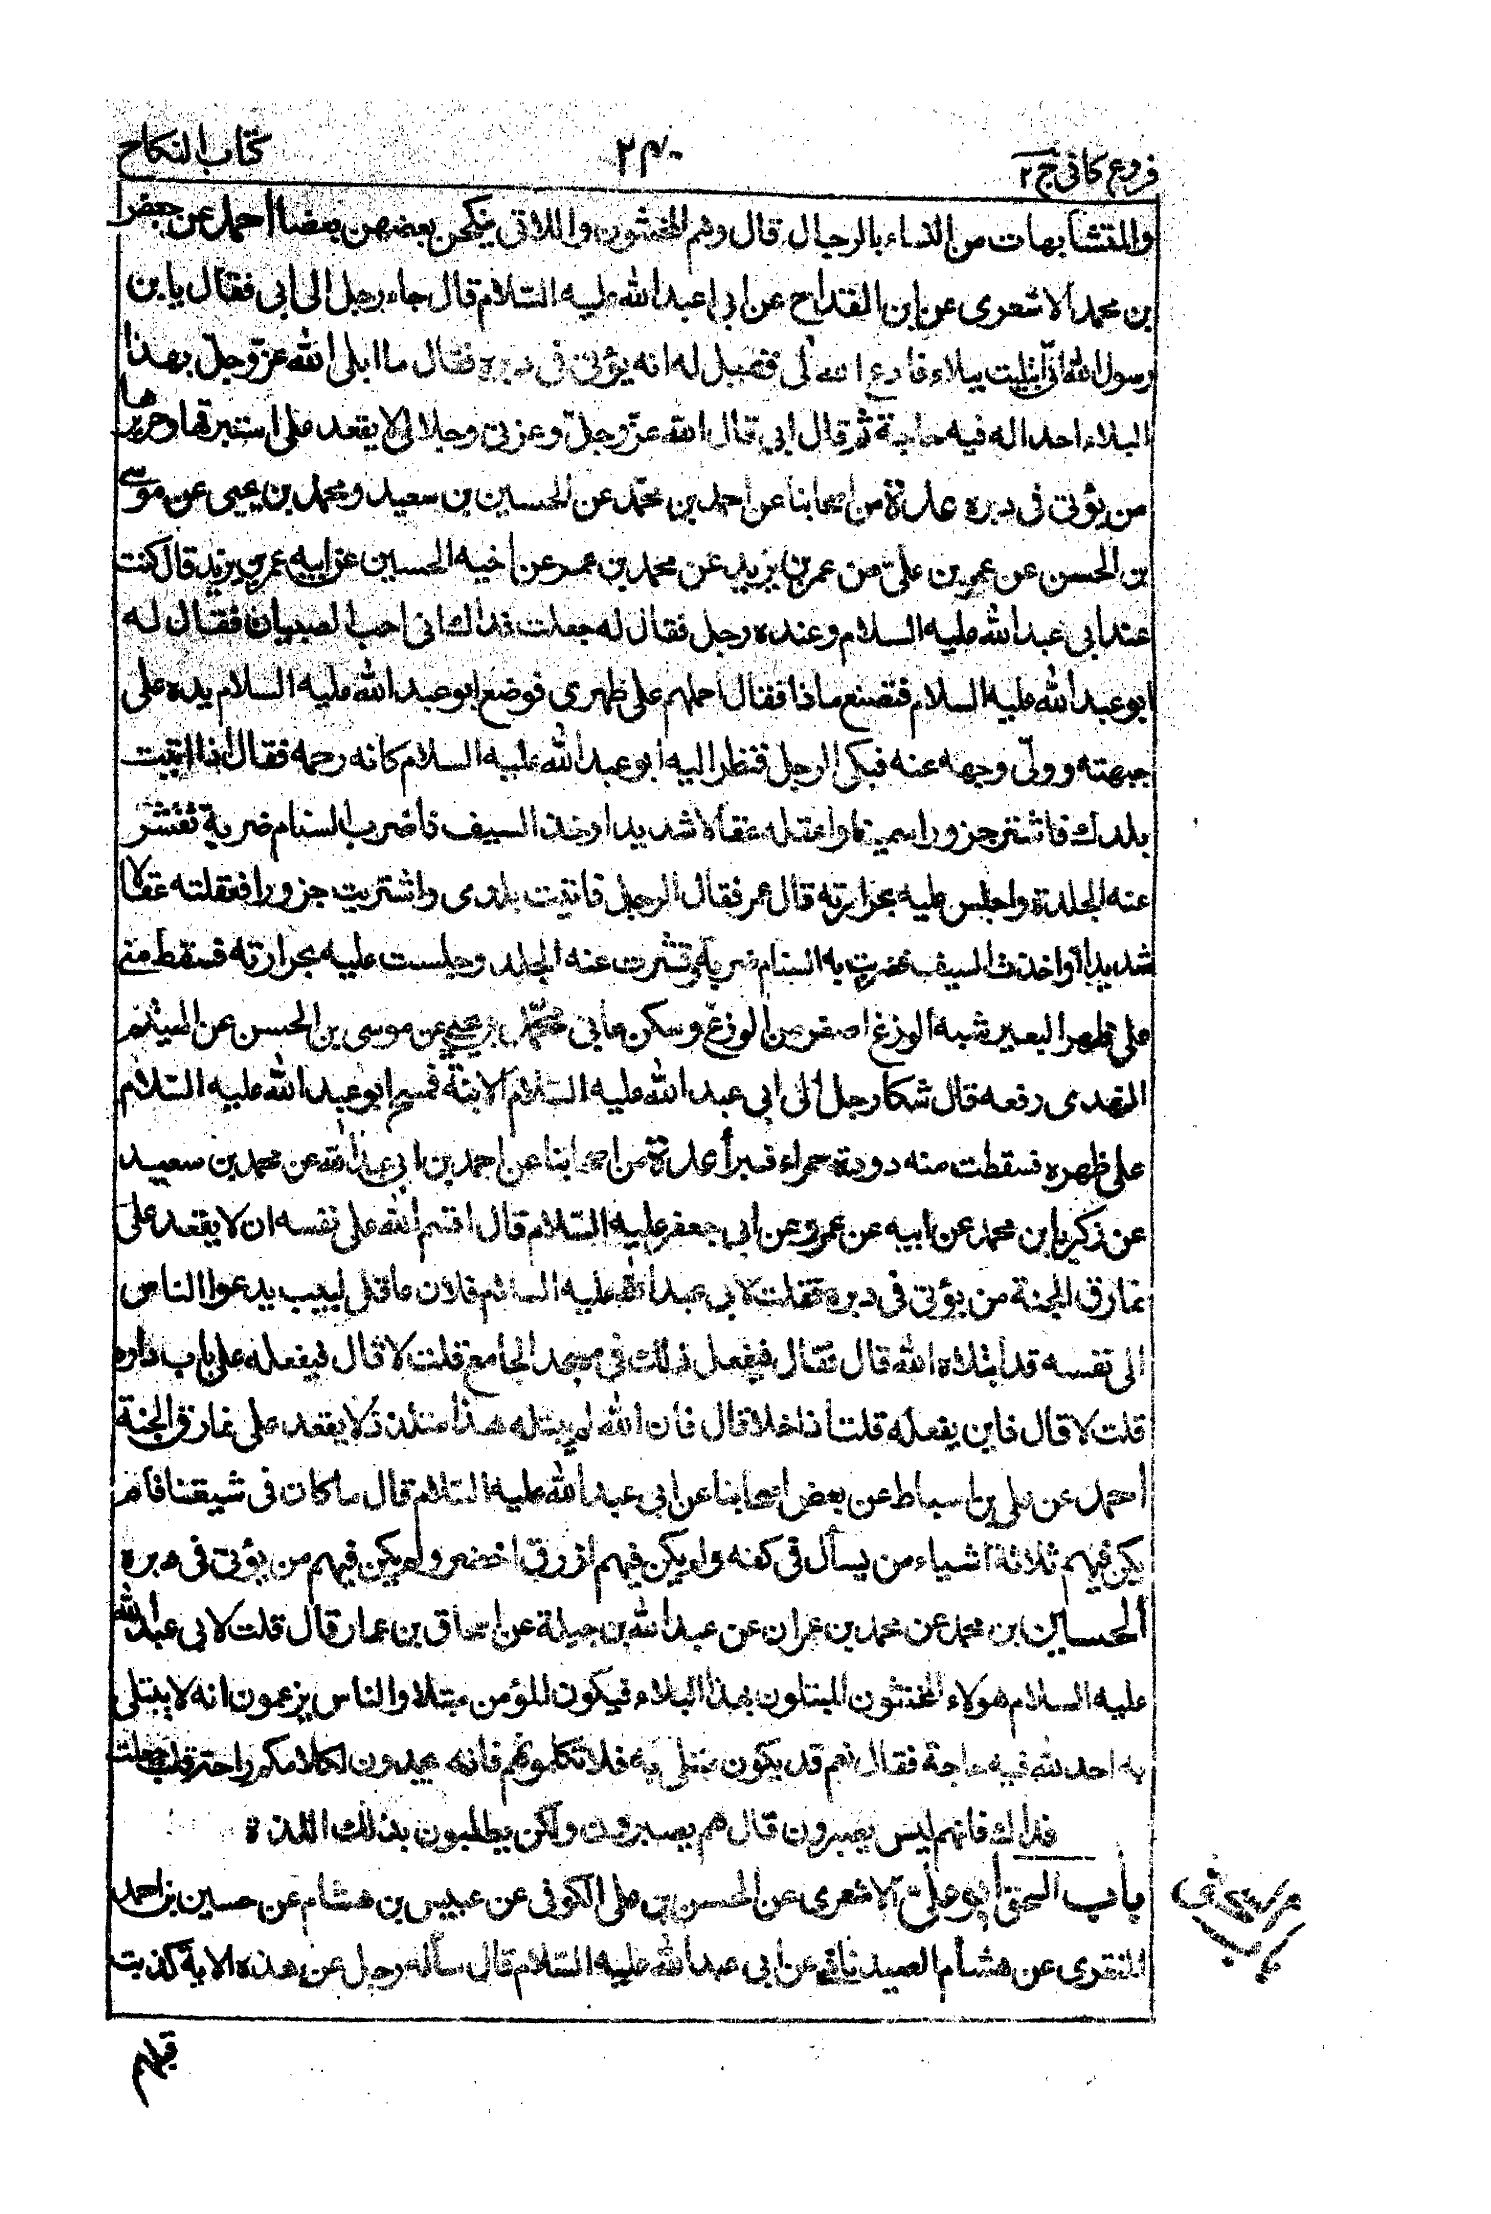 فروع كافى ج ٢
٢٣٠
كتاب النكاح
والمتشابهات من النساء بالرجال قال وهم المخنثون واللاتى ينكحن بعضهن بعضا احمد عن جعفر
بن محمد الاشعرى عن ابن القداح عن ابى عبد الله عليه السلام قال جاء رجل الى ابى فقال يا بن
رسول الله انى ابتليت ببلاء فادع الله لى فقيل له انه يؤتى فى دبره فقال ما ابلى الله عز وجل بهذا
البلاء احدا له فيه حاجة ثم قال ابى قال الله عز وجل وعزتى وجلالى لا يقعد على استبرقها وحريرها
من يؤتى فى دبره عدة من اصحابنا عن احمد بن محمد عن الحسين بن سعيد ومحمد بن يحيى عن موسى
بن الحسن عن عمر بن على من عمر بن يزيد عن محمد بن عمر عن اخيه الحسين عن ابيه عمر بن يزيد قال كنت
عند ابى عبد الله عليه السلام وعنده رجل فقال له جعلت فداك انى احب الصبيان فقال له
ابو عبد الله عليه السلام فتصنع ماذا فقال احملهم على ظهرى فوضع ابو عبد الله عليه السلام يده على
جبهته وولى وجهه عنه فبكى الرجل فنظر اليه ابو عبد الله عليه السلام كانه رحمه فقال اذا اتيت
بلدك فاشتر جزورا سمينا واعقله عقالا شديدا وخذ السيف فاضرب السنام ضربة تقشر
عنه الجلدة واجلس عليه بحرارته قال عمر فقال الرجل فاتيت بلدى واشتريت جزورا فعقلته عقالا
شديدا واخذت السيف فضربت به السنام ضربة وقشرت عنه الجلد وجلست عليه بحرارته فسقط منى
على ظهر البعير شبه الوزغ اصغر من الوزغ وسكن ما بى محمد بن يحيى عن موسى بن الحسن عن الهيثم
النهدى رفعه قال شكا رجل الى ابى عبد الله عليه السلام الابنة فمسح ابو عبد الله عليه السلام
على ظهره فسقطت منه دودة حمراء فبرأ عدة من اصحابنا عن احمد بن ابى عبد الله عن محمد بن سعيد
عن زكريا بن محمد عن ابيه عن عمرو عن ابى جعفر عليه السلام قال اقسم الله على نفسه ان لا يقعد على
نمارق الجنة من يؤتى فى دبره فقلت لابى عبد الله عليه السلام فلان عاقل لبيب يدعوا الناس
الى نفسه قد ابتلاه الله قال فقال فيفعل ذلك فى مسجد الجامع قلت لا قال فيفعله على باب داره
قلت لا قال فاين يفعله قلت اذا خلا قال فان الله لم يبتله هذا متلذذ لا يقعد على نمارق الجنة
احمد عن على بن اسباط عن بعض اصحابنا عن ابى عبد الله عليه السلام قال ما كان فى شيعتنا فلم
يكن فيهم ثلاثة اشياء من يسأل فى كفه ولم يكن فيهم ازرق اخضر ولم يكن فيهم من يؤتى فى دبره
الحسين بن محمد عن محمد بن عمران عن عبد الله بن جبلة عن اسحاق بن عمار قال قلت لابى عبد الله
عليه السلام هولاء المخنثون المبتلون بهذا البلاء فيكون المؤمن مبتلا والناس يزعمون انه لا يبتلى
به احد لله فيه حاجة فقال نعم قد يكون مبتلى به فلا تكلموهم فانهم يجدون لكلامكم راحة قلت جعلت
فداك فانهم ليس يصبرون قال هم يصبرون ولكن يطلبون بذلك اللذة
باب السحق ابو على الاشعرى عن الحسن بن على الكوفى عن عبيس بن هشام عن حسين بن احمد
المنقرى عن هشام الصيدنانى عن ابى عبد الله عليه السلام قال سأله رجل عن هذه الاية كذبت
قبلهم